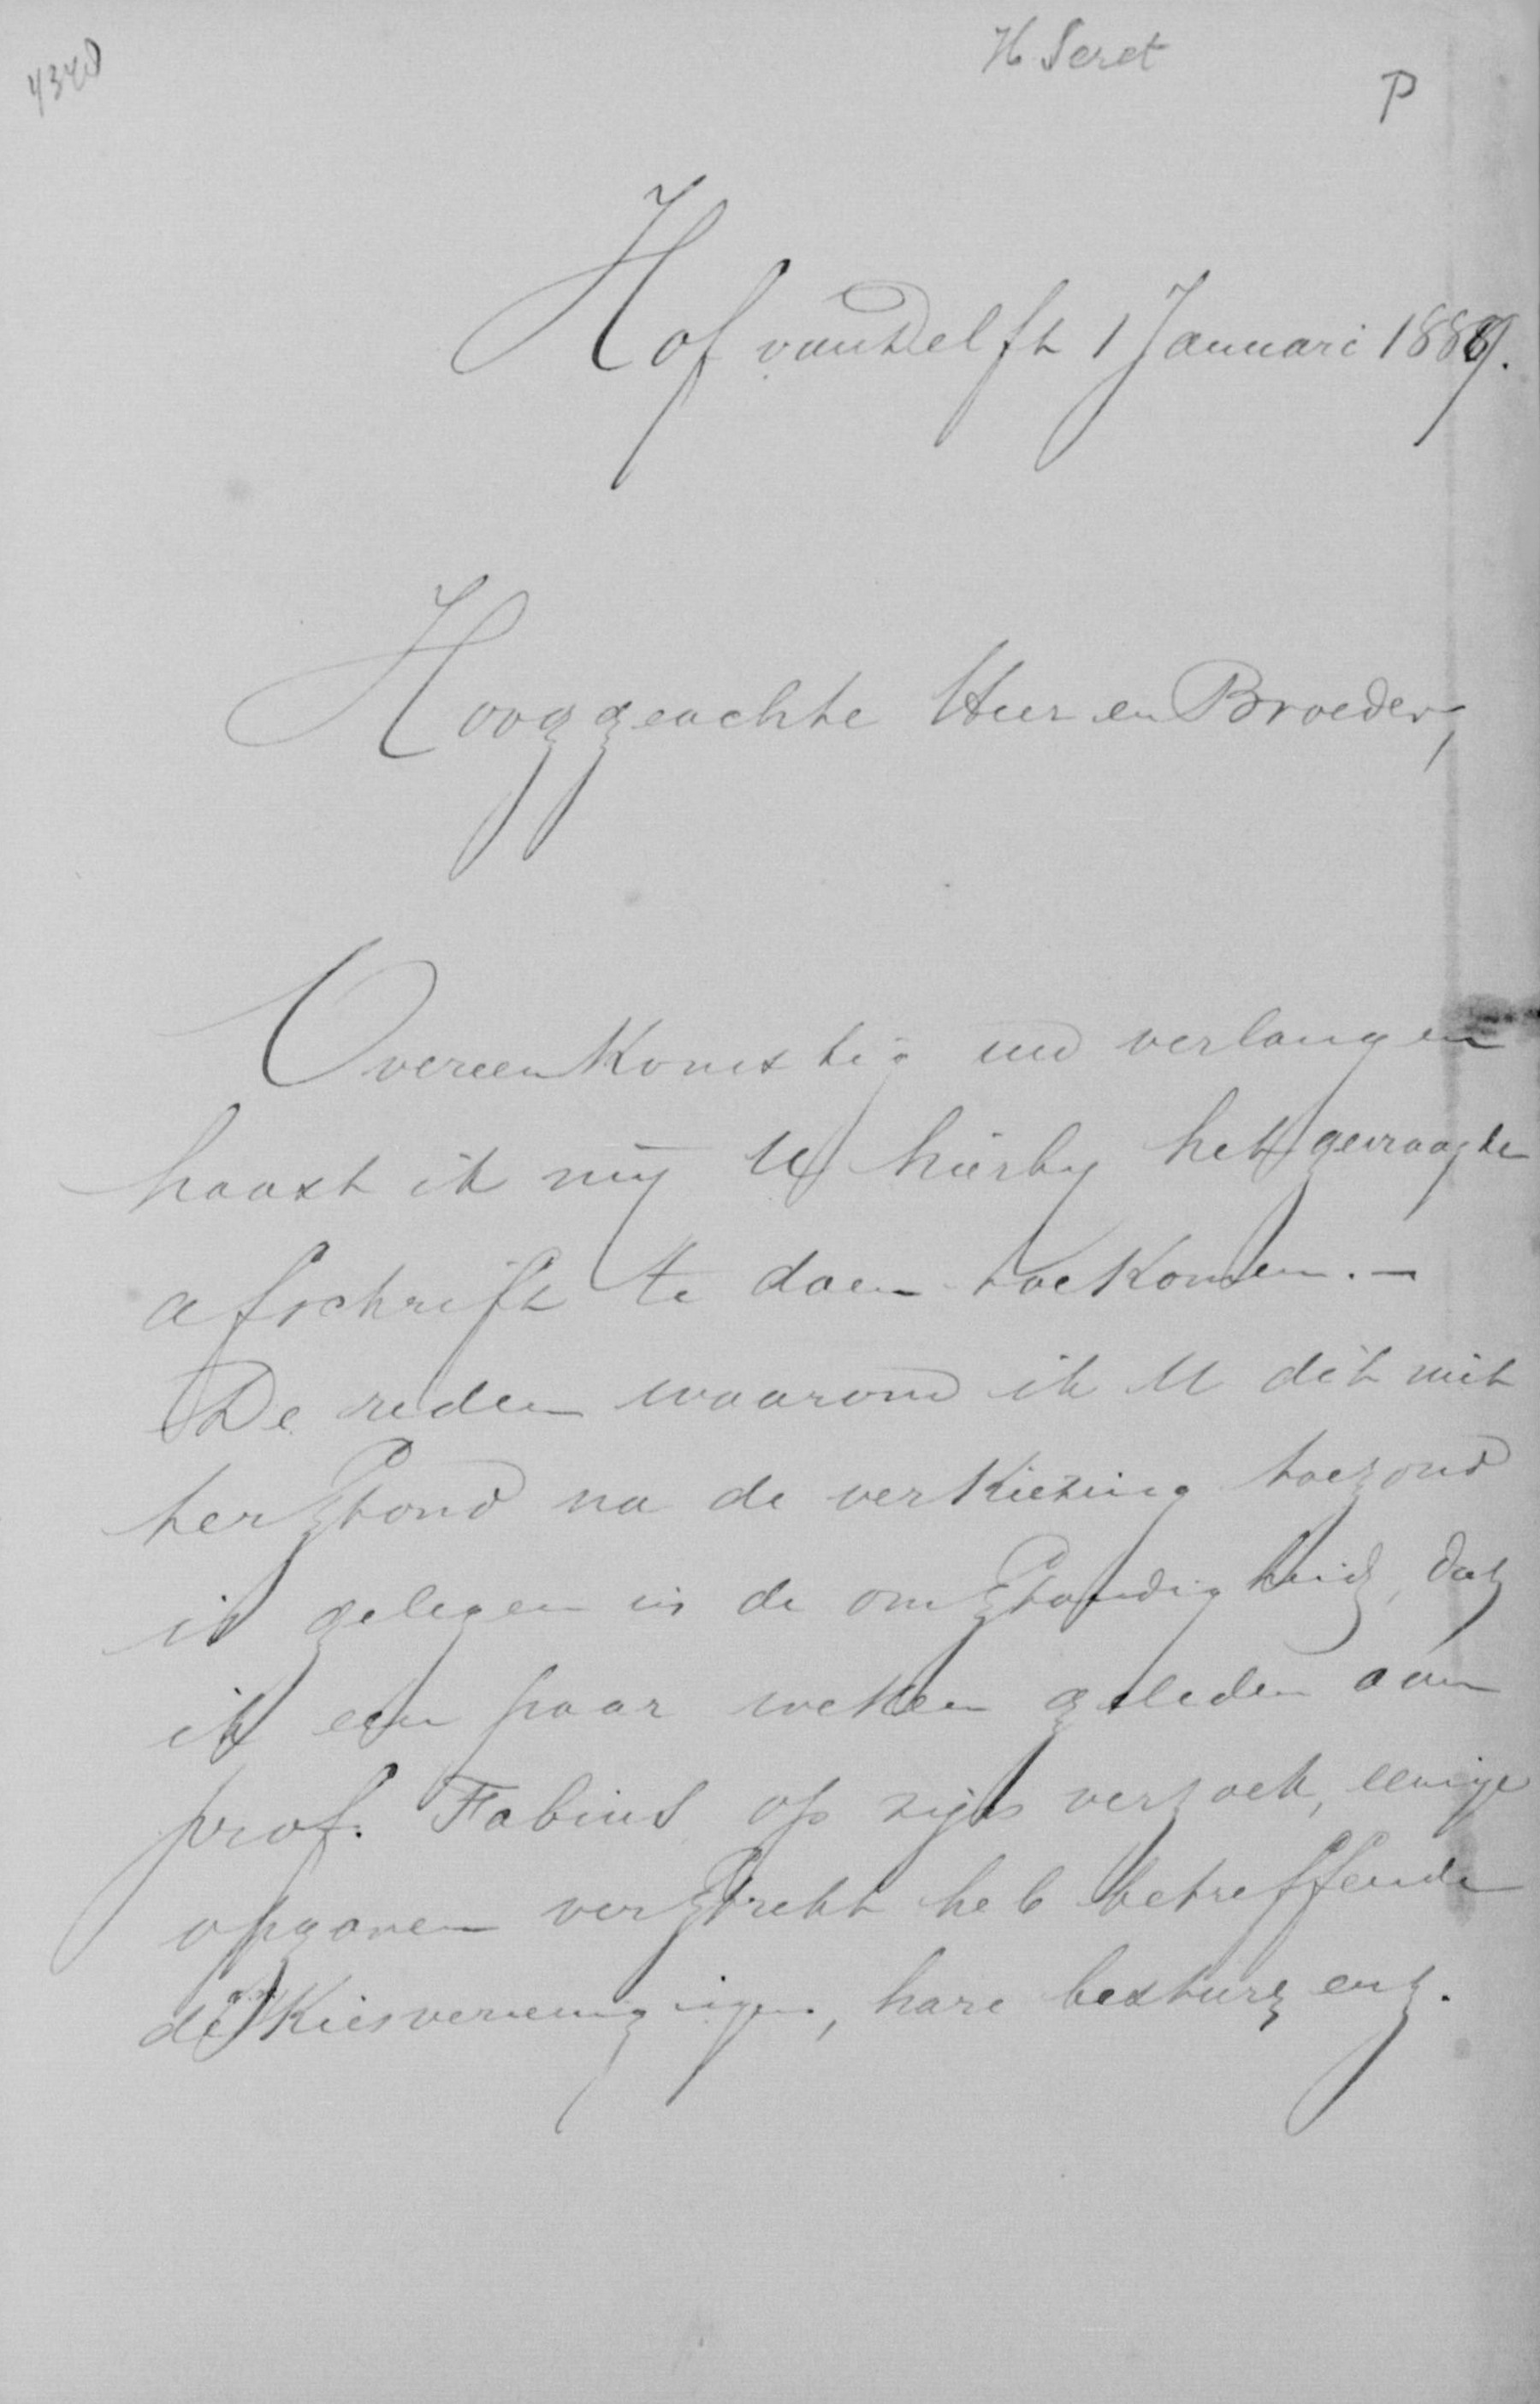 4340
H Seret
P
Hof van Delft 1 Januari 1889.
Hooggeachte Heer en Broeder,
Overeenkomstig uw verlangen
haast ik mij U hierby het gevraagde
afschrift te doen toekomen. —
De reden waarom ik U dit niet
terstond na de verkiezing toezond
is gelegen in de omstandigheid, dat
ik een paar weken geleden aan
prof. Fabius op zijn verzoek, eenige
opgaven verstrekt heb betreffende
de Kiesvereenigingen, hare bestuur enz.